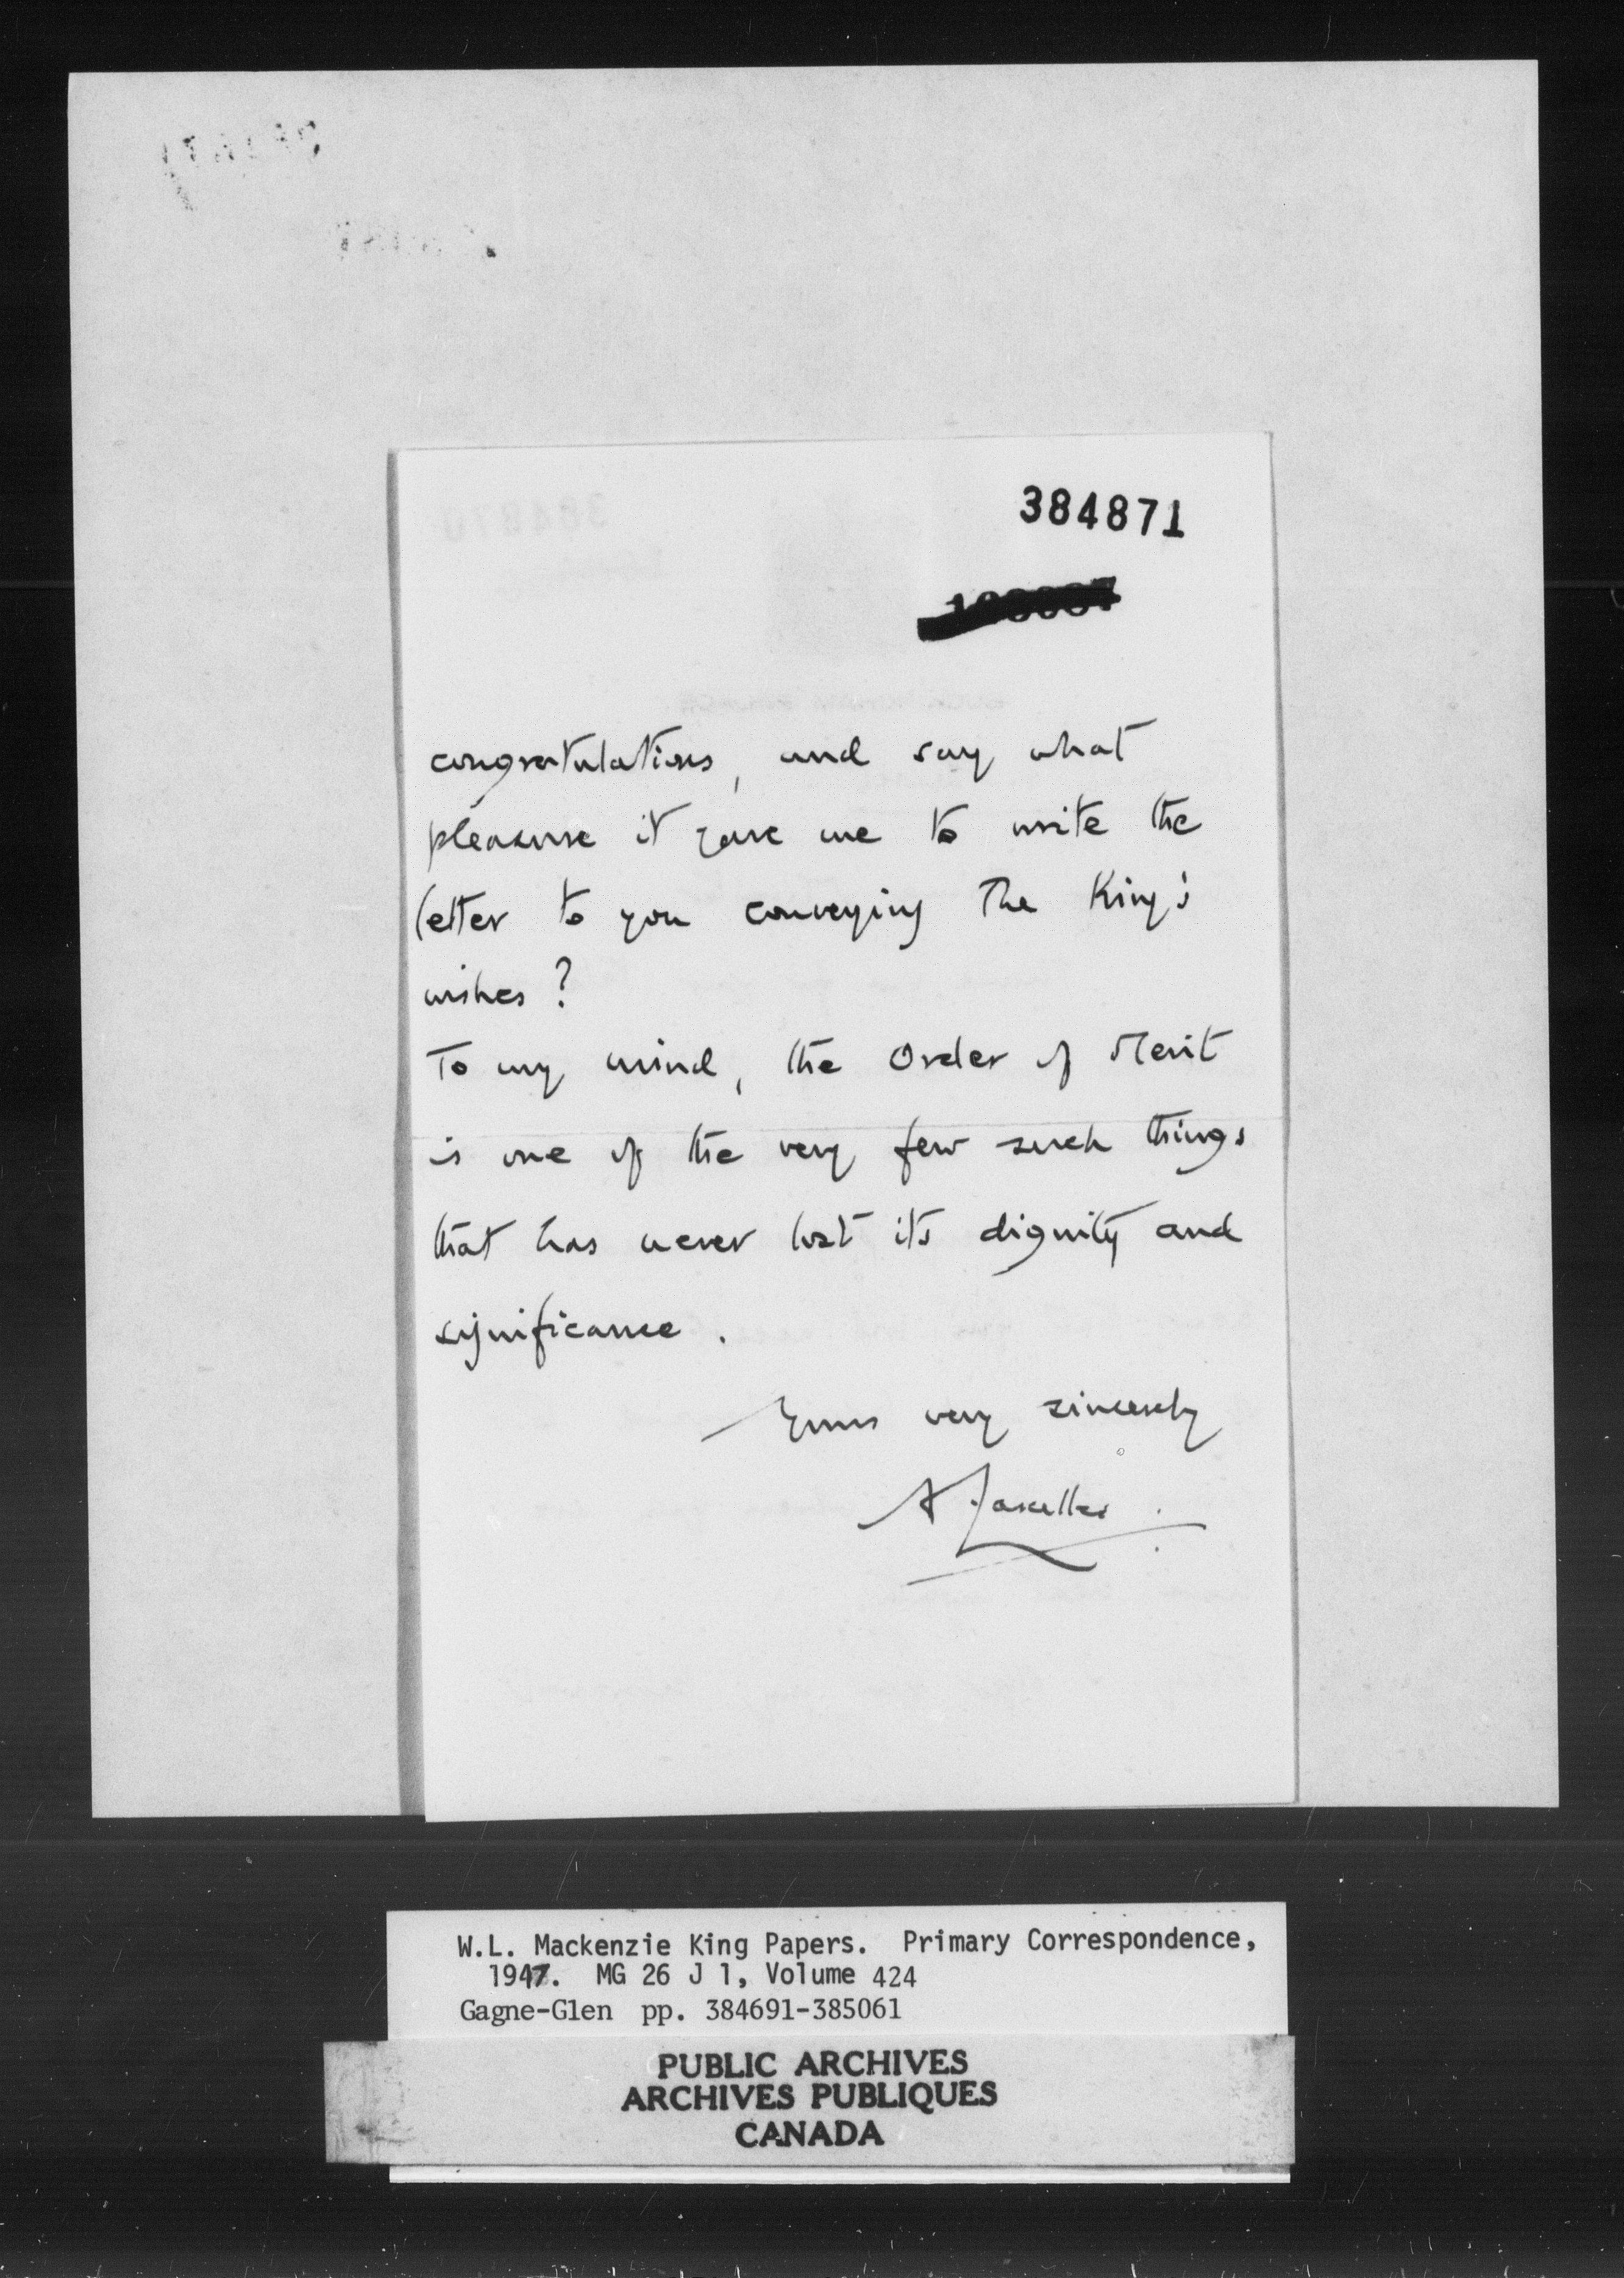 384871
congratulations, and say what
pleasure it gave me to write the
letter to you conveying The King's
wishes?
To my mind, the Order of Merit
is one of the very few such things
that has never lost its dignity and
significance.
Yours very sincerely
A Lascelles.
W.L. Mackenzie King Papers. Primary Correspondence,
1947. MG 26 J 1, Volume 424
Gagne-Glen pp. 384691-385061
PUBLIC ARCHIVES
ARCHIVES PUBLIQUES
CANADA